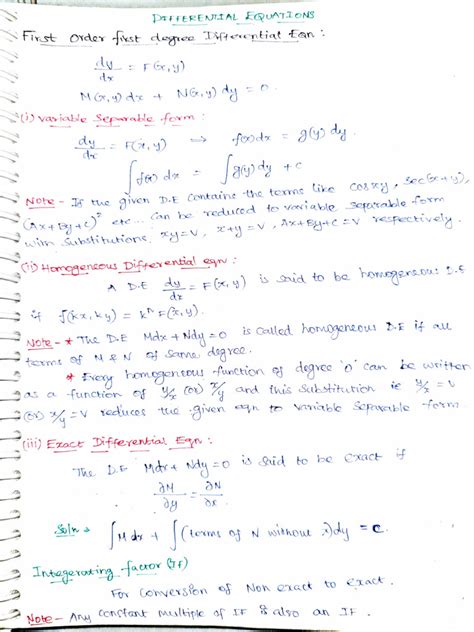 DIFFERENTIAL EQUATIONS
First Order first degree Differential Eqn :
dy/dx = F(x,y)
M(x,y) dx + N(x,y) dy = 0.
(i) Variable Separable form :
dy/dx = F(x,y) → f(x)dx = g(y) dy.
∫f(x) dx = ∫g(y) dy + c
Note - If the given D.E contains the terms like cos xy, sec(x+y),
(Ax+By+c)² etc... can be reduced to variable separable form
with substitutions, xy=v, x+y=v, Ax+By+c=v respectively.
(ii) Homogeneous Differential eqn :
A D.E dy/dx = F(x,y) is said to be homogeneous D.E
if f(kx, ky) = kⁿ F(x,y).
Note - * The D.E Mdx + Ndy = 0 is called homogeneous D.E if all
terms of M & N of same degree.
* Every homogeneous function of degree '0' can be written
as a function of y/x (or) x/y and this substitution ie y/x = v
(or) x/y = v reduces the given eqn to variable separable form
(iii) Exact Differential Eqn :
The D.E Mdx + Ndy = 0 is said to be exact if
∂M/∂y = ∂N/∂x
Soln → ∫M dx + ∫(terms of N without x)dy = c.
Integerating factor (IF)
For conversion of Non exact to exact.
Note - Any constant multiple of IF is also an IF.